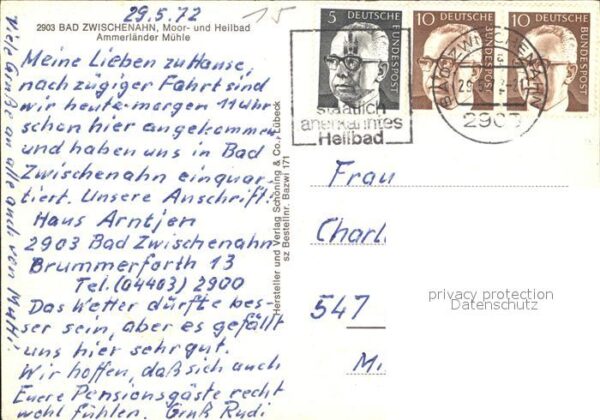 29.5.72
15
2903 BAD ZWISCHENAHN, Moor- und Heilbad
Ammerländer Mühle
Meine Lieben zu Hause,
nach zügiger Fahrt sind
wir heute morgen 11 Uhr
schon hier angekommen
und haben uns in Bad
Zwischenahn einquar-
tiert. Unsere Anschrift:
Haus Arntjen
2903 Bad Zwischenahn
Brummerforth 13
Tel. (04403) 2900
Das Wetter dürfte bes-
ser sein, aber es gefällt
uns hier sehr gut.
Wir hoffen, daß sich auch
Euere Pensionsgäste recht
wohl fühlen. Gruß Rudi
Viele Grüße an alle auch von Mutti.
Hersteller und Verlag Schöning & Co., Lübeck
sz Bestellnr. Bazwi 171
5 DEUTSCHE BUNDESPOST
10 DEUTSCHE BUNDESPOST
10 DEUTSCHE BUNDESPOST
staatlich
anerkanntes
Heilbad
BAD ZWISCHENAHN
2903
Frau
Charl
547
M
privacy protection
Datenschutz